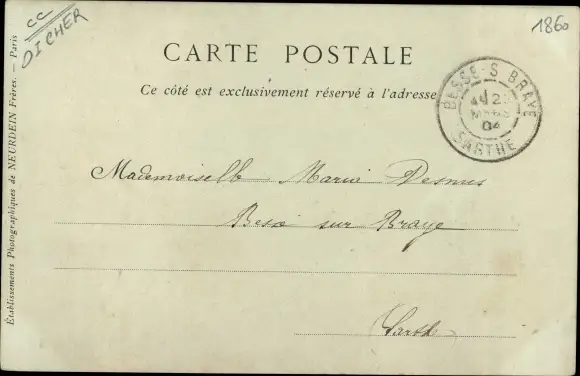 CC
DICHER
1860
CARTE POSTALE
Ce côté est exclusivement réservé à l'adresse
BESSE-S-BRAYE
MARS
04
SARTHE
Mademoiselle Maria Desmus
Bessé sur Braye
Sarthe
Établissements Photographiques de NEURDEIN Frères. — Paris